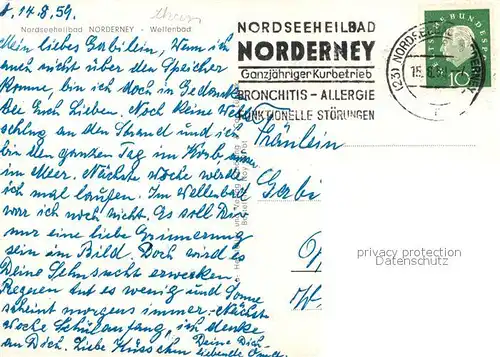 d. 14.8.59.
Nordseeheilbad NORDERNEY - Wellenbad
Mein liebes Gabilein, Wenn ich
auch nicht über den Speicher
komme, bin ich doch in Gedanken
bei Euch Lieben. Noch keine
schlug an den Strand und ich
bin den ganzen Tag im Korb
im Meer. Nächste Woche werde
ich mal laufen. Im Wellenbad
war ich noch nicht. Es soll Dir
nur eine liebe Erinnerung
sein im Bild. Doch wird es
Deine Sehnsucht erwecken.
Regnen tut es wenig und Sonne
scheint morgens immer. Nächste
Woche Schulanfang, ich denke
an Dich. Liebe Küsschen Deine Dich
liebende
NORDSEEHEILBAD
NORDERNEY
Ganzjähriger Kurbetrieb
BRONCHITIS - ALLERGIE
FUNKTIONELLE STÖRUNGEN
(23) NORDSEE
15.8.59
DEUTSCHE BUNDESPOST
10
Fräulein
Gabi
privacy protection
Datenschutz